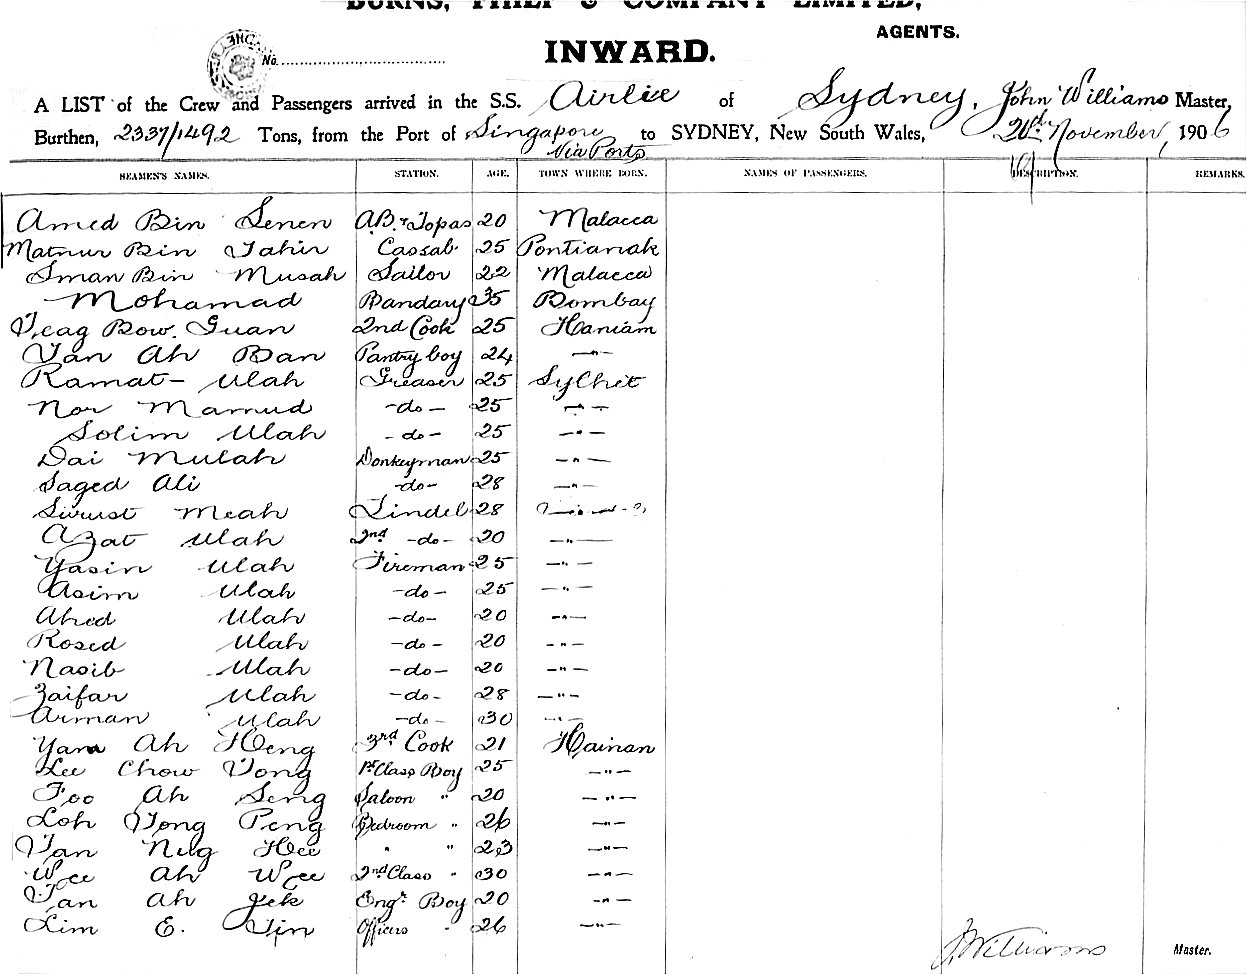 BURNS, PHILP & COMPANY LIMITED,
AGENTS.
INWARD.
No.
A LIST of the Crew and Passengers arrived in the S.S. Airlie of Sydney, John Williams Master,
Burthen, 2337/1492 Tons, from the Port of Singapore to SYDNEY, New South Wales, November, 1906
Via Ports
SEAMEN'S NAMES. STATION. AGE. TOWN WHERE BORN. NAMES OF PASSENGERS. DESCRIPTION. REMARKS.
Amed Bin Senen A.B. & Topas 20 Malacca
Matnur Bin Tahir Cassab 25 Pontianak
Sman Bin Musah Sailor 22 Malacca
Mohamad Bandary 35 Bombay
Teag Bow Guan 2nd Cook 25 Haniam
Tan Ah Ban Pantry boy 24 —"—
Ramat- Ulah Greaser 25 Sylhit
Nor Mamud -do- 25 —"—
Solim Ulah -do- 25 —"—
Dai Mulah Donkeyman 25 —"—
Saged Ali -do- 28 —"—
Meah Tindel 28
Azat Ulah 2nd -do- 20 —"—
Yasin Ulah Fireman 25 —"—
Asim Ulah -do- 25 —"—
Ahed Ulah -do- 20 —"—
Rosed Ulah -do- 20 —"—
Nasib Ulah -do- 20 —"—
Zaifar Ulah -do- 28 —"—
Arman Ulah -do- 30 —"—
Yam Ah Heng 3rd Cook 21 Hainan
Lee Chow Vong 1st Class Boy 25 —"—
Foo Ah Seng Saloon " 20 —"—
Loh Tong Peng Bedroom " 26 —"—
Tan Nug Hee " " 23 —"—
Wee Ah Wee 2nd Class " 30 —"—
Tan Ah Jek Engr Boy 20 —"—
Lim E. Tin Officers " 26 —"—
J Williams Master.